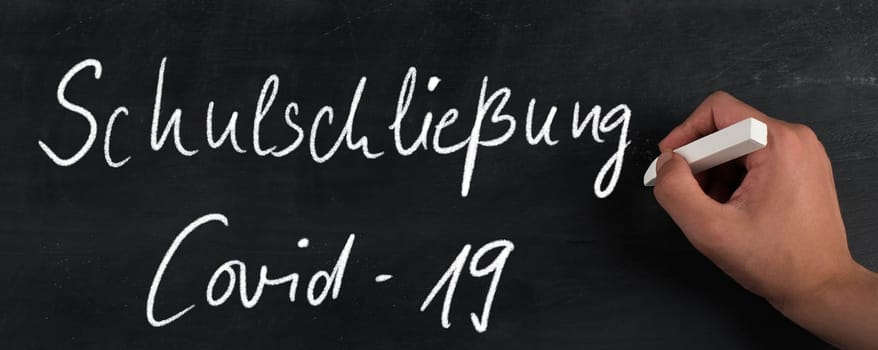 Schulschließung
Covid-19